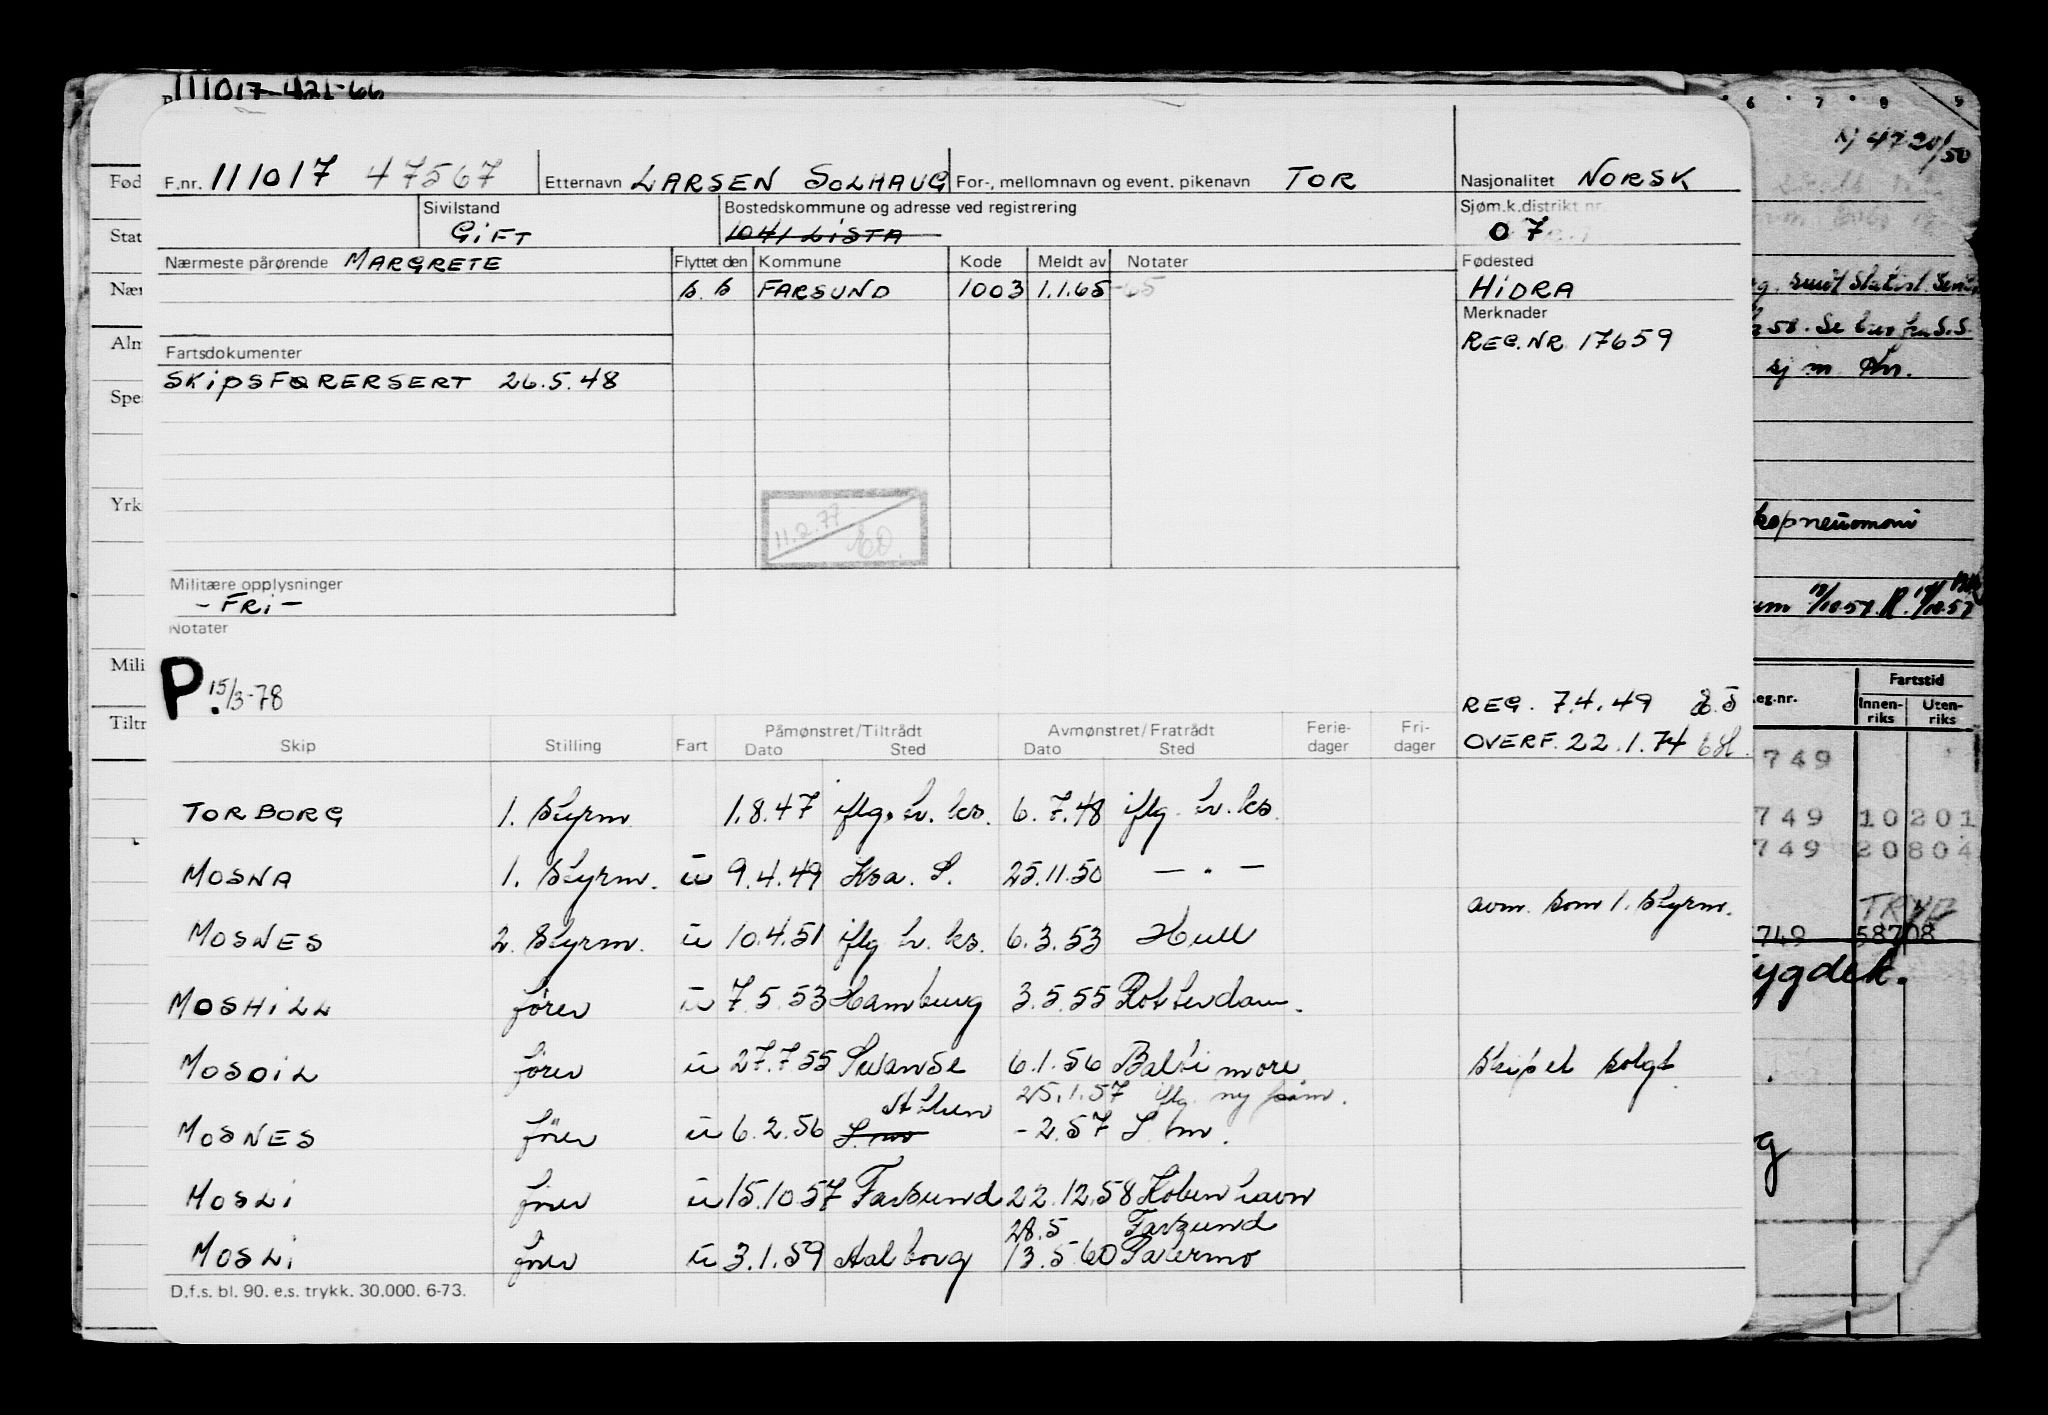 111017-421-66
F.nr. 111017 47567 Etternavn LARSEN SOLHAUG For-, mellomnavn og event. pikenavn TOR Nasjonalitet NORSK
Sivilstand GIFT Bostedskommune og adresse ved registrering 1041 LISTA Sjøm.k.distrikt nr. 07
Nærmeste pårørende MARGRETE Flyttet den Kommune Kode Meldt av Notater Fødested HIDRA
FARSUND 1003 1.1.65
Merknader
REG.NR 17659
Fartsdokumenter
SKIPSFØRERSERT 26.5.48
11.2.77
Militære opplysninger
- FRI -
Notater
P. 15/3-78
REG. 7.4.49
OVERF. 22.1.74
Skip Stilling Fart Påmønstret/Tiltrådt Dato Sted Avmønstret/Fratrådt Dato Sted Ferie-dager Fri-dager
TORBORG 1. Styrm. 1.8.47 iflg. hr. ks. 6.7.48 iflg. hr. ks.
MOSNA 1. Styrm. u 9.4.49 Ksa. S. 25.11.50 — " —
avm. som 1. Styrm.
MOSNES 2. Styrm. u 10.4.51 iflg hr. ks. 6.3.53 Hull
MOSHILL fører u 7.5.53 Hamburg 3.5.55 Rotterdam.
MOSOIL fører u 27.7.55 Swanse 6.1.56 Baltimore Skipet solgt
25.1.57 iflg. ny påm.
MOSNES fører u 6.2.56 -2.57
MOSLI fører u 15.10.57 Farsund 22.12.58 Köbenhavn
28.5 Farsund
MOSLI fører u 3.1.59 Aalborg 13.5.60 Palermo
D.f.s. bl. 90. e.s. trykk. 30.000. 6-73.
Fød
Stat
Nær
Alm
Spe
Yrk
Mili
Tiltr
6 7 8 9
4720/50
sj m
kopneumoni
eg.nr. Fartstid
Innen-riks Uten-riks
749
749 10201
749 20804
749 58708